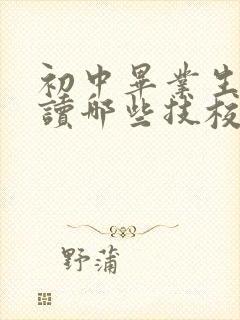 初中畢業生
讀那些技校
野蒲